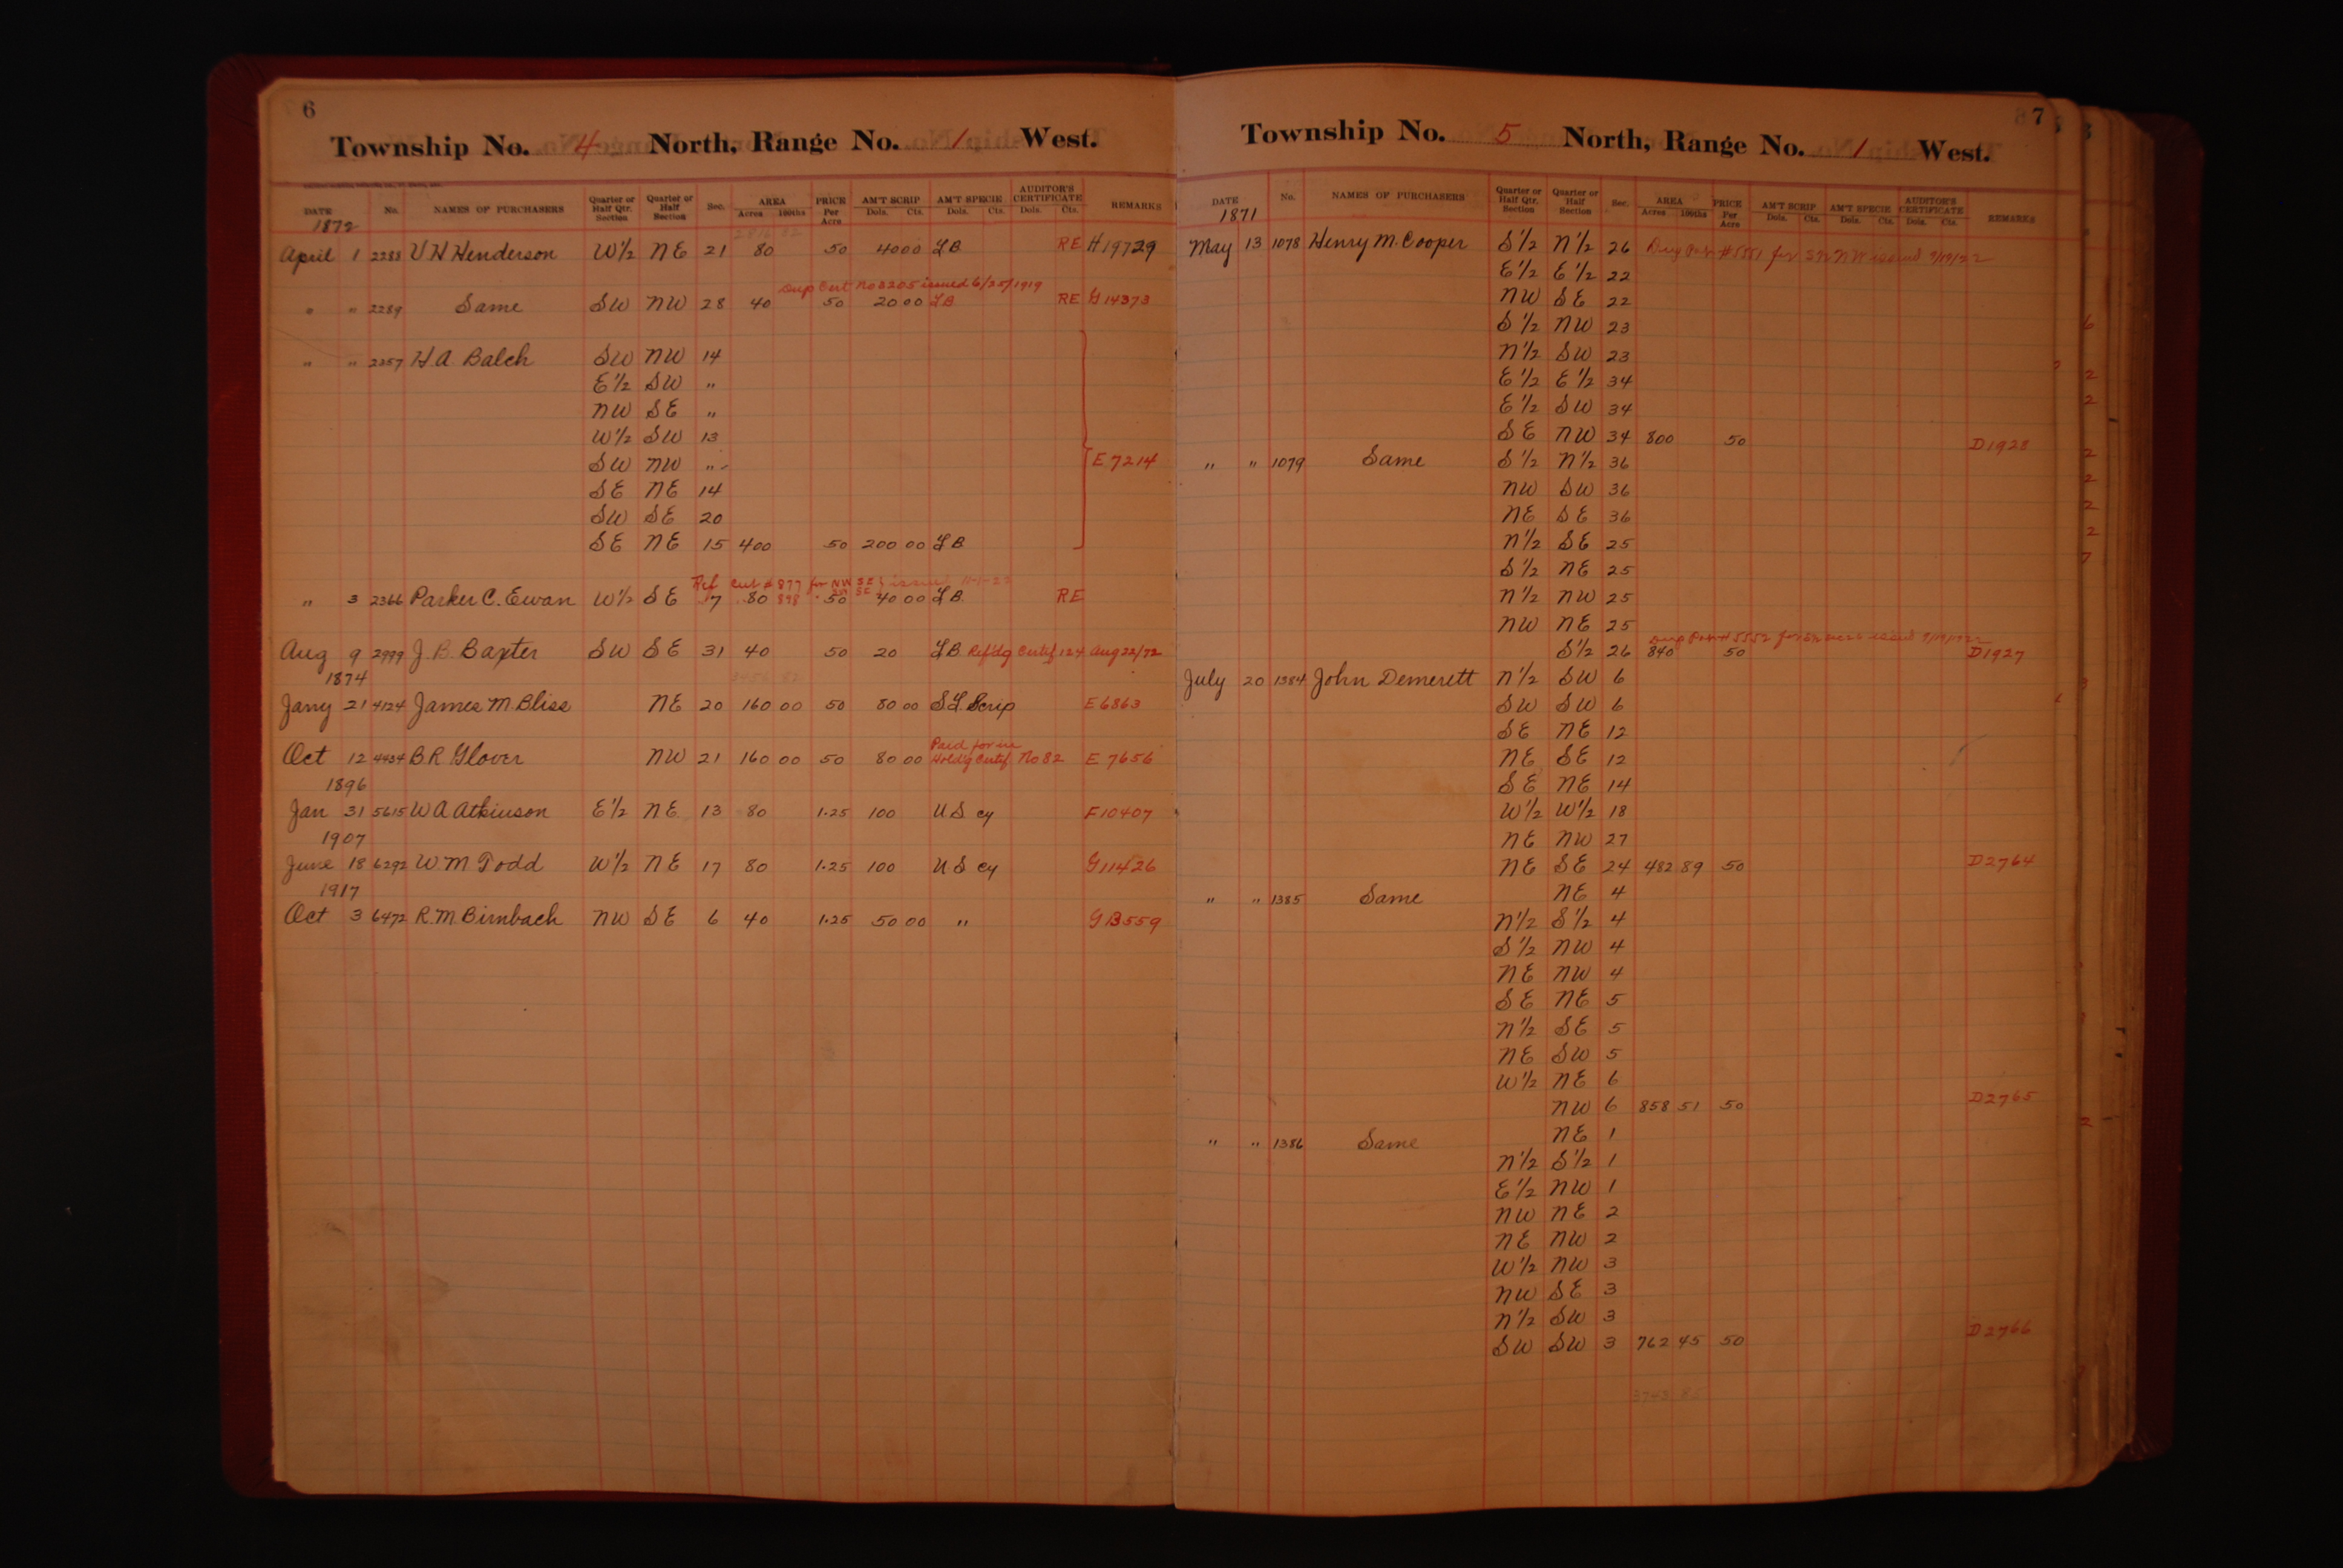 6
Township No. 4 North, Range No. 1 West.
DATE No. NAMES OF PURCHASERS Quarter or Half Qtr. Section Quarter or Half Section Sec. AREA Acres 100ths PRICE Per Acre AM'T SCRIP Dols. Cts. AM'T SPECIE Dols. Cts. AUDITOR'S CERTIFICATE Dols. Cts. REMARKS
1872
April 1 2288 V H Henderson W½ NE 21 80 50 40 00 L B RE H19729
Dup Cert No 3205 issued 6/25/1919
" " 2289 Same SW NW 28 40 50 20 00 L B RE G14373
" " 2357 H. A. Balch SW NW 14
E½ SW "
NW SE "
W½ SW 13
SW NW "
E 7214
SE NE 14
SW SE 20
SE NE 15 400 50 200 00 L B
Ref cert # 877 for NW SE issued 11-1-22
898 " SW SE
" 3 2366 Parker C. Ewan W½ SE 17 80 50 40 00 L B. RE
Aug 9 2999 J. B. Baxter SW SE 31 40 50 20 L B Refdg Certif 124 Aug 22/72
1874
Jany 21 4124 James M. Bliss NE 20 160 00 50 80 00 S. L. Scrip E6863
Paid for in
Oct 12 4434 B. R. Glover NW 21 160 00 50 80 00 Holdg Certif No 82 E 7656
1896
Jan 31 5615 W A Atkinson E½ NE 13 80 1.25 100 U S cy F10407
1907
June 18 6292 W M Todd W½ NE 17 80 1.25 100 U S cy G11426
1917
Oct 3 6472 R. M. Birnbach NW SE 6 40 1.25 50 00 " G13559
7
Township No. 5 North, Range No. 1 West.
DATE No. NAMES OF PURCHASERS Quarter or Half Qtr. Section Quarter or Half Section Sec. AREA Acres 100ths PRICE Per Acre AM'T SCRIP Dols. Cts. AM'T SPECIE Dols. Cts. AUDITOR'S CERTIFICATE Dols. Cts. REMARKS
1871
May 13 1078 Henry M. Cooper S½ N½ 26 Dup Pat # 5551 for issued 9/19/22
E½ E½ 22
NW SE 22
S½ NW 23
N½ SW 23
E½ E½ 34
E½ SW 34
SE NW 34 800 50 D1928
" " 1079 Same S½ N½ 36
NW SW 36
NE SE 36
N½ SE 25
S½ NE 25
N½ NW 25
NW NE 25
Dup Pat # 5552 issued 9/19/1922
S½ 26 840 50 D1927
July 20 1384 John Demerett N½ SW 6
SW SW 6
SE NE 12
NE SE 12
SE NE 14
W½ W½ 18
NE NW 27
NE SE 24 482 89 50 D2764
" " 1385 Same NE 4
N½ S½ 4
S½ NW 4
NE NW 4
SE NE 5
N½ SE 5
NE SW 5
W½ NE 6
NW 6 858 51 50 D2765
" " 1386 Same NE 1
N½ S½ 1
E½ NW 1
NW NE 2
NE NW 2
W½ NW 3
NW SE 3
N½ SW 3
SW SW 3 762 45 50 D2766